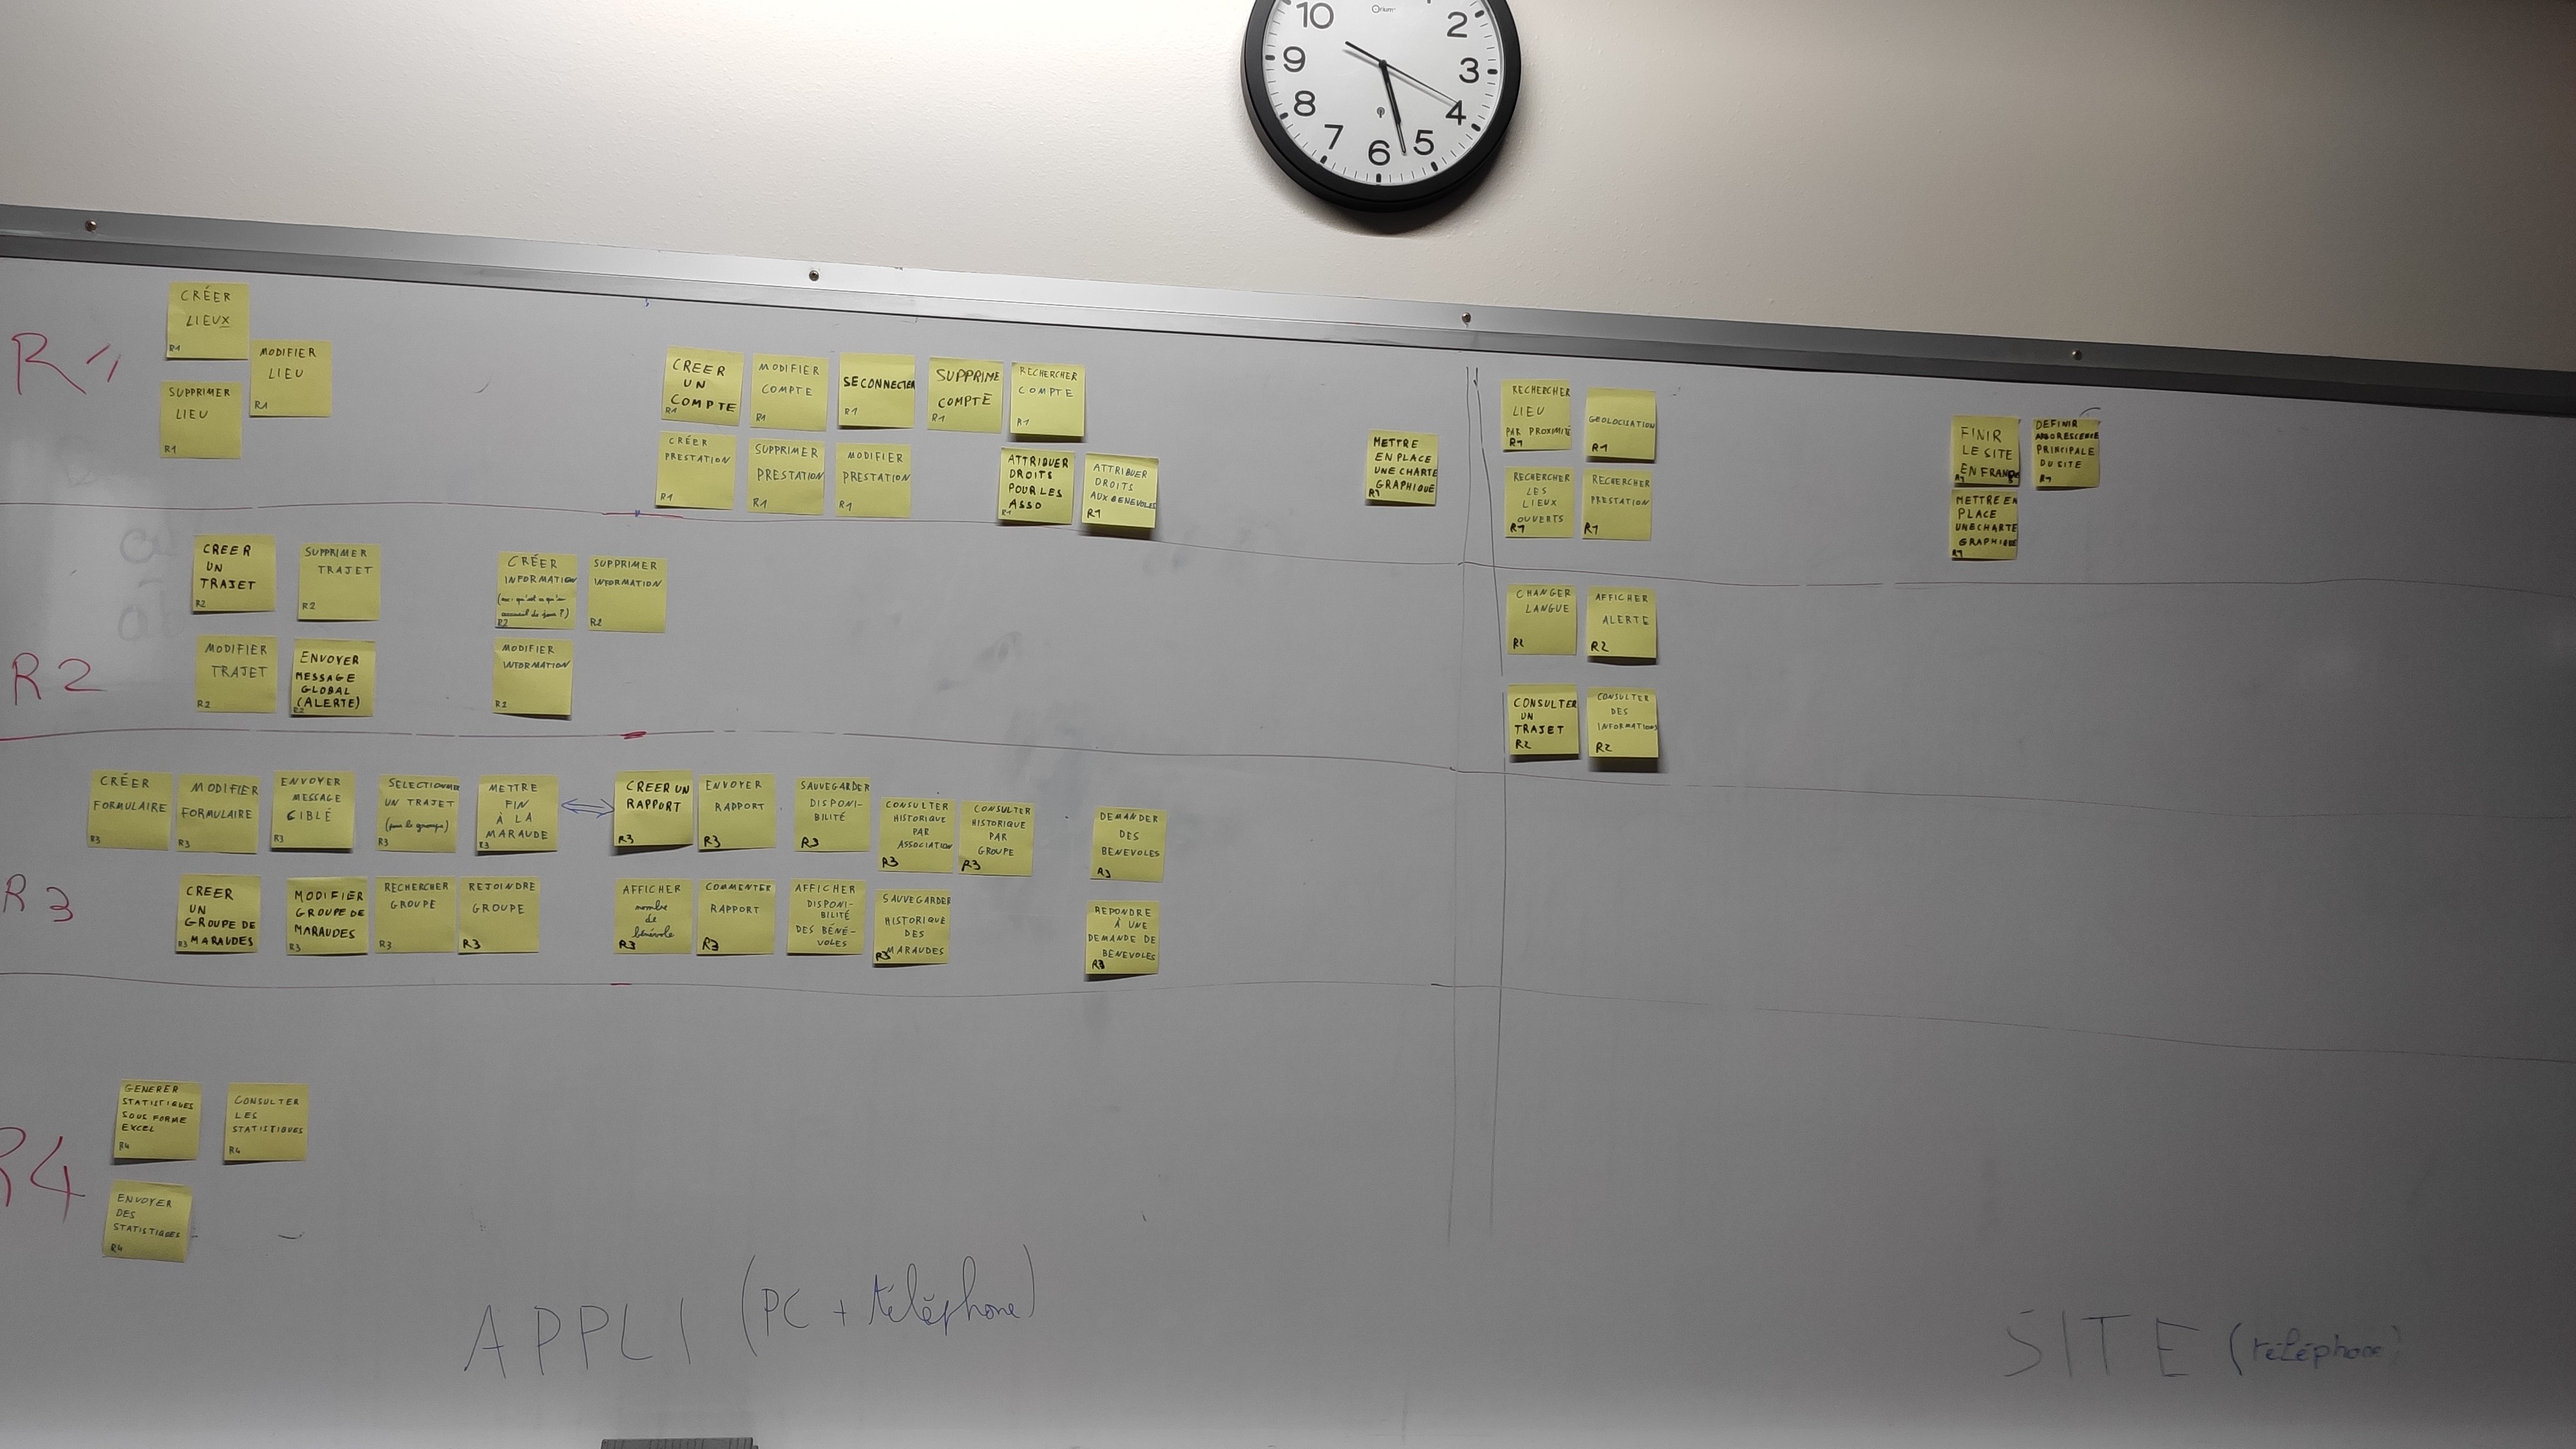 10
2
9
3
8
4
7
6
5
R1
CRÉER
LIEUX
R1
MODIFIER
LIEU
R1
SUPPRIMER
LIEU
R1
CREER
UN
COMPTE
R1
MODIFIER
COMPTE
R1
SE CONNECTER
R1
SUPPRIME
COMPTE
R1
RECHERCHER
COMPTE
R1
CRÉER
PRESTATION
R1
SUPPRIMER
PRESTATION
R1
MODIFIER
PRESTATION
R1
ATTRIBUER
DROITS
POUR LES
ASSO
R1
ATTRIBUER
DROITS
AUX BENEVOLES
R1
METTRE
EN PLACE
UNE CHARTE
GRAPHIQUE
R1
RECHERCHER
LIEU
PAR PROXIMITÉ
R1
GEOLOCISATION
R1
RECHERCHER
LES
LIEUX
OUVERTS
R1
RECHERCHER
PRESTATION
R1
FINIR
LE SITE
EN FRANÇAIS
R1
DEFINIR
ARBORESCENCE
PRINCIPALE
DU SITE
R1
METTRE EN
PLACE
UNE CHARTE
GRAPHIQUE
R1
R2
CREER
UN
TRAJET
R2
SUPPRIMER
TRAJET
R2
CRÉER
INFORMATION
accueil de jour ?)
R2
SUPPRIMER
INFORMATION
R2
MODIFIER
TRAJET
R2
ENVOYER
MESSAGE
GLOBAL
(ALERTE)
R2
MODIFIER
INFORMATION
R2
CHANGER
LANGUE
R2
AFFICHER
ALERTE
R2
CONSULTER
UN
TRAJET
R2
CONSULTER
DES
INFORMATIONS
R2
R3
CRÉER
FORMULAIRE
R3
MODIFIER
FORMULAIRE
R3
ENVOYER
MESSAGE
CIBLÉ
R3
SELECTIONNER
UN TRAJET
(pour le groupe)
R3
METTRE
FIN
À LA
MARAUDE
R3
CREER UN
RAPPORT
R3
ENVOYER
RAPPORT
R3
SAUVEGARDER
DISPONI-
BILITÉ
R3
CONSULTER
HISTORIQUE
PAR
ASSOCIATION
R3
CONSULTER
HISTORIQUE
PAR
GROUPE
R3
DEMANDER
DES
BENEVOLES
R3
CREER
UN
GROUPE DE
MARAUDES
R3
MODIFIER
GROUPE DE
MARAUDES
R3
RECHERCHER
GROUPE
R3
REJOINDRE
GROUPE
R3
AFFICHER
nombre
de
bénévole
R3
COMMENTER
RAPPORT
R3
AFFICHER
DISPONI-
BILITÉ
DES BÉNÉ-
VOLES
SAUVEGARDER
HISTORIQUE
DES
MARAUDES
R3
REPONDRE
À UNE
DEMANDE DE
BENEVOLES
R3
R4
GENERER
STATISTIQUES
SOUS FORME
EXCEL
R4
CONSULTER
LES
STATISTIQUES
R4
ENVOYER
DES
STATISTIQUES
R4
APPLI (PC + téléphone)
SITE (téléphone)